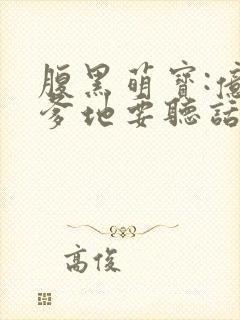 腹黑萌寶:億
爹地要聽話
高俊